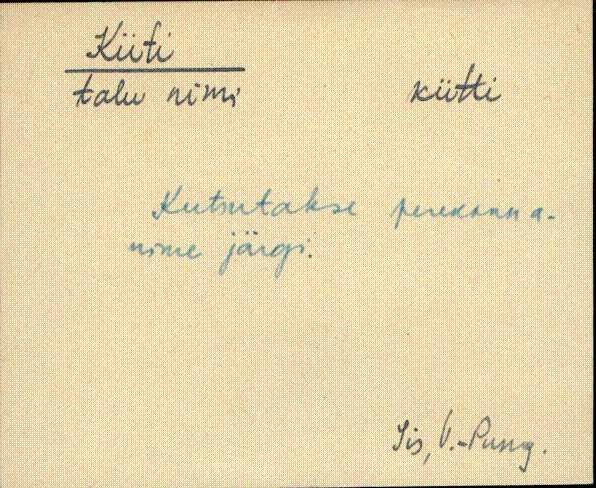 Küti
talu nimi kütti
Kutsutakse perekonna-
nime järgi.
Iis, V.-Pung.